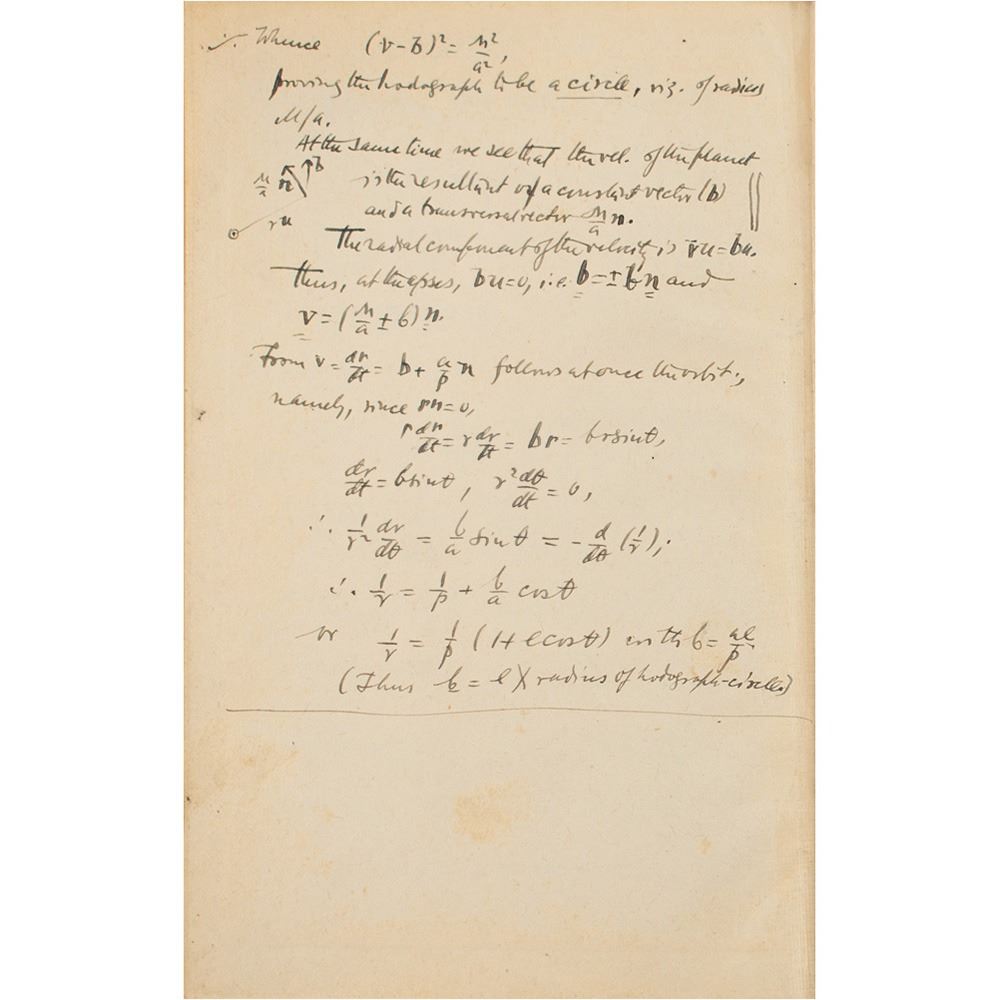 ∴ Whence (v-b)² = M²/a²,
proving the hodograph to be a circle, viz. of radius
M/a.
At the same time we see that the vel. of the planet
is the resultant of a constant vector (b)
and a transversal vector M/a n.
M/a n b
ru
The radial component of the velocity is vu = bu.
Thus, at the apses, bu=0, i.e. b = ± b n and
v = (M/a ± b) n.
From v = dr/dt = b + a/p n follows at once the orbit;
namely, since rn=0,
r dr/dt = r dr/dt = br = br sin θ,
dr/dt = b sin θ, r² dθ/dt = a,
∴ 1/r² dr/dθ = b/a sin θ = - d/dθ (1/r);
∴ 1/r = 1/p + b/a cos θ
or 1/r = 1/p (1+e cos θ) with b = ae/p
(Thus b = e × radius of hodograph-circle)